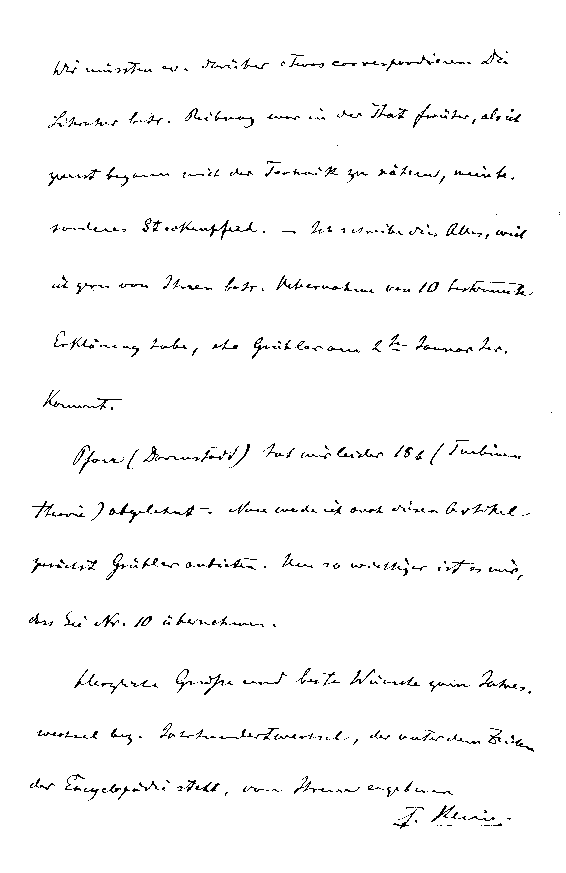 Wir müssten ev. darüber etwas correspondieren. Die
Literatur betr. Reibung war in der That früher, als ich
zuerst begann mich der Technik zu nähern, mein be-
sonderes Steckenpferd. – Ich schreibe dies Alles, weil
ich gern von Ihnen betr. Uebernahme von 10 bestimmte
Erklärung habe, ehe Grübler am 2ten Januar her
kommt.
Pfarr (Darmstadt) hat mir leider 18b (Turbinen
theorie) abgelehnt. Nun werde ich auch diesen Artikel
zunächst Grübler anbieten. Um so wichtiger ist es mir,
dass Sie Nr. 10 übernehmen.
Herzliche Grüße und beste Wünsche zum Jahres-
wechsel bez. Jahrhundertwechsel, der unter dem Zeichen
der Encyclopädie steht, von Ihrem ergebenen
F. Klein.